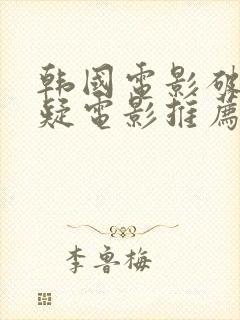 韩國電影破
疑電影推薦
李魯梅